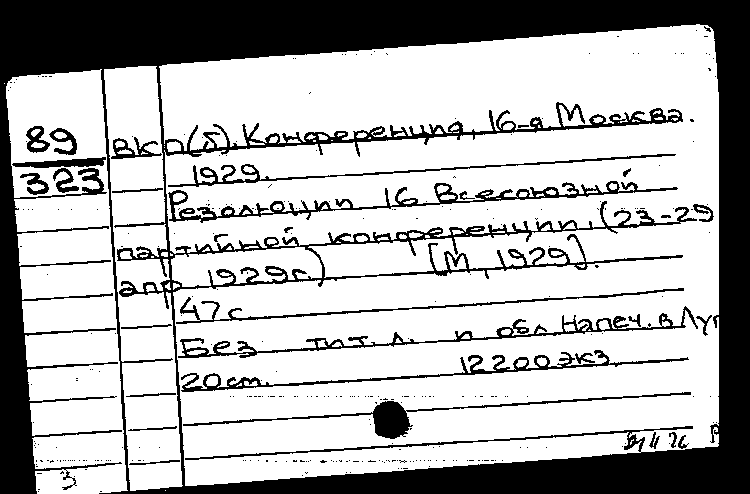 89
323
ВКП(б). Конференция, 16-я. Москва.
1929.
Резолюции 16 Всесоюзной
партийной конференции, (23-29
апр 1929г.) [М, 1929].
47с
Без тит. л. и обл Напеч. в Луг
20см. 12200экз.
3